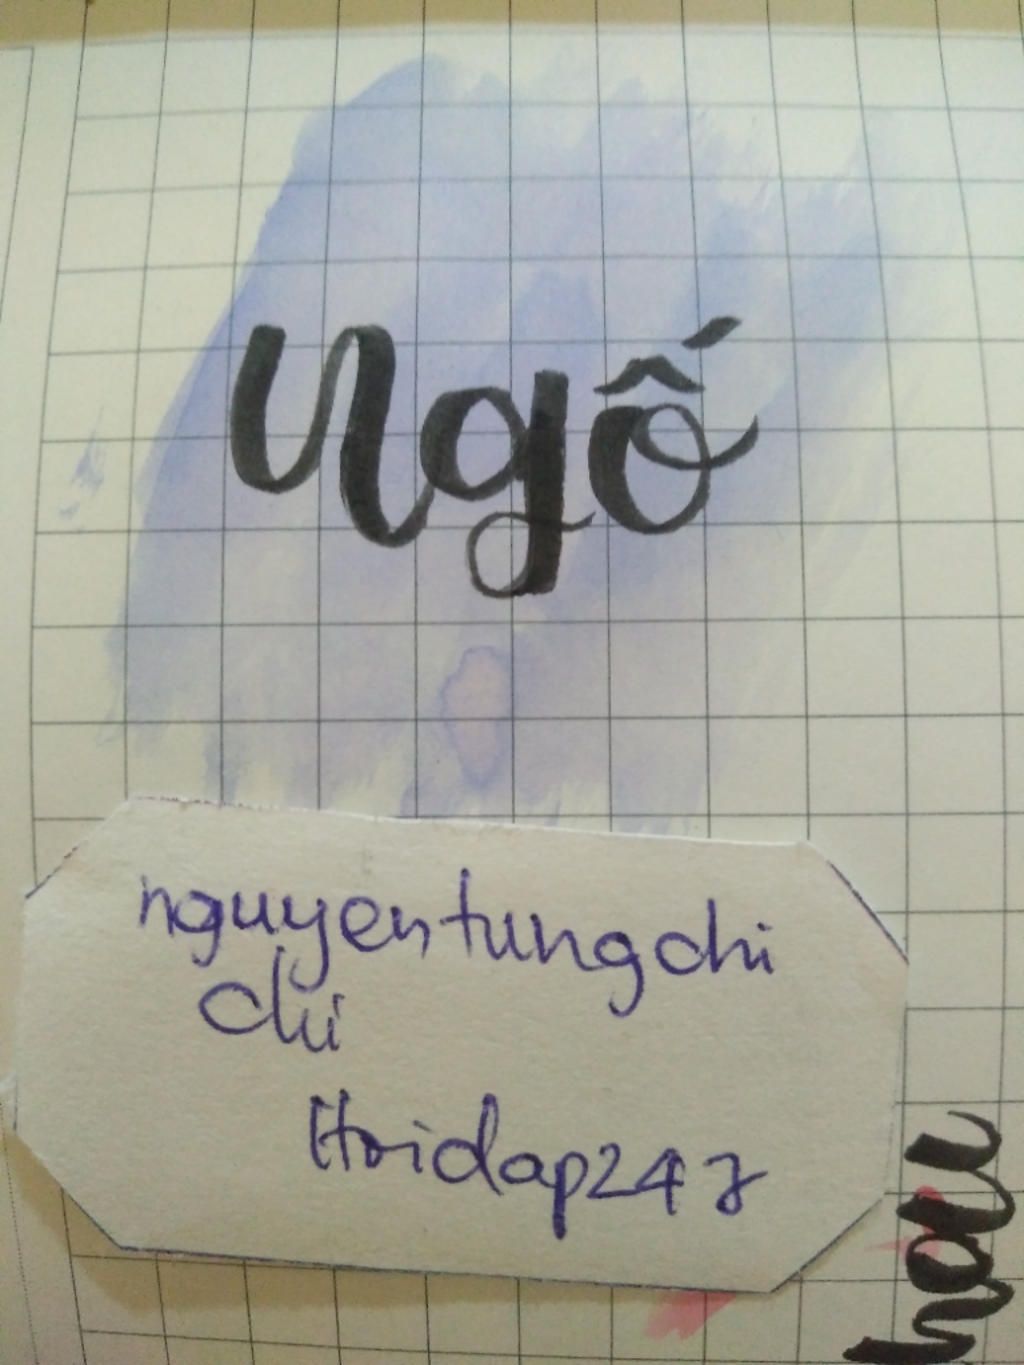 Ngố
nguyentungchi
chi
Hoidap247
hau